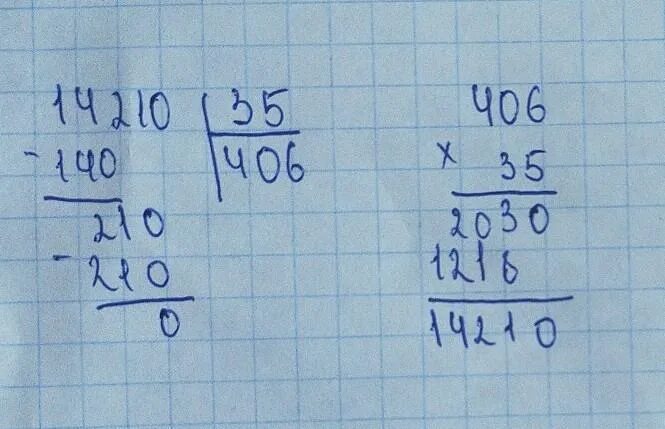 14210 | 35
- 140 | 406
210
- 210
0
406
x 35
2030
1218
14210